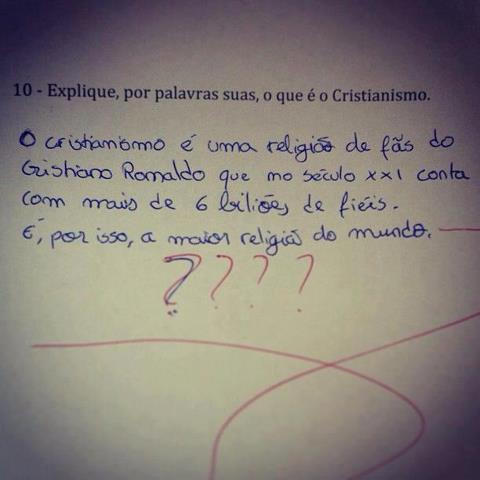 10 - Explique, por palavras suas, o que é o Cristianismo.
O cristianismo é uma religião de fãs do
Cristiano Ronaldo que no século XXI conta
com mais de 6 biliões de fiéis.
É, por isso, a maior religião do mundo.
? ? ? ?